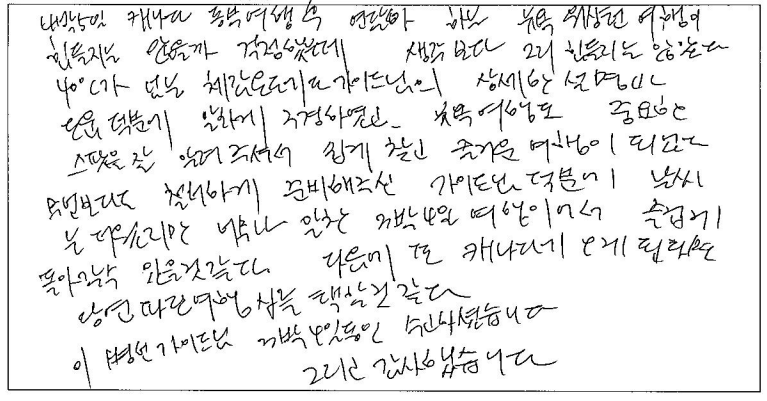 4박5일 캐나다 동부여행 후 연달아 하는 뉴욕 워싱턴 여행이
힘들지는 않을까 걱정했는데 생각보다 그리 힘들지는 않았다
40°C가 넘는 체감온도 가이드님의 상세한 설명
덕분에 알차게 구경하였고 뉴욕여행도 중요한
스팟을 잘 알려주셔서 쉽게 찾고 즐거운 여행이 되었고
무엇보다도 철저하게 준비해주신 가이드님 덕분에 날씨
는 더웠지만 너무나 알찬 3박4일 여행이어서 즐겁게
돌아갈수 있을것같다. 다음에 또 캐나다에 오게 된다면
당연 파란여행사를 택할것 같다
이 가이드님 3박4일동안 수고하셨습니다
그리고 감사했습니다